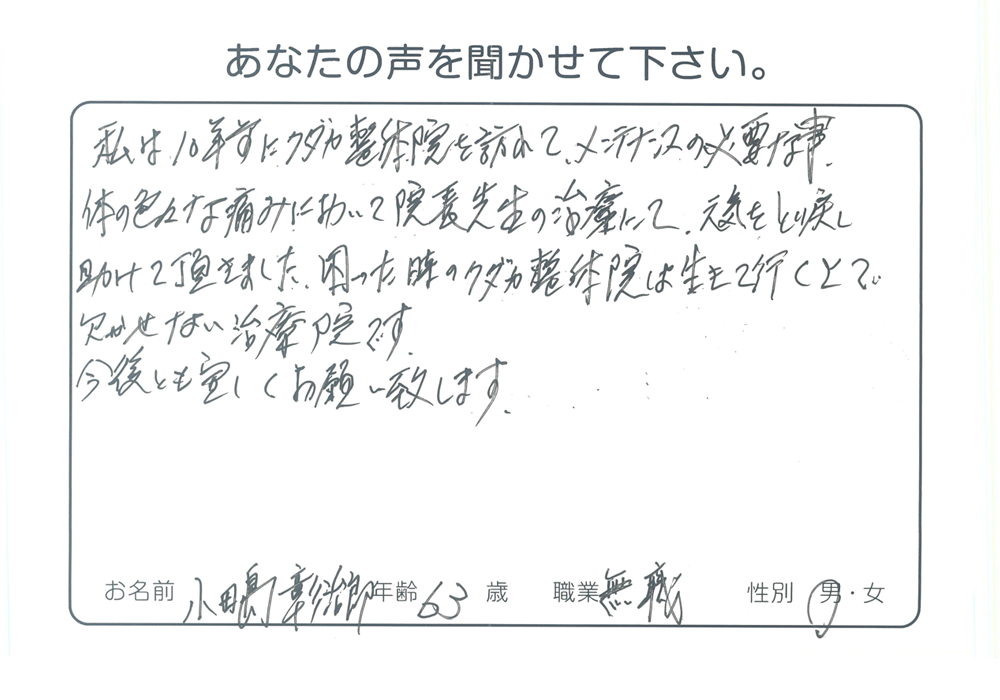 あなたの声を聞かせて下さい。
私は10年前にクダカ整体院を訪れて、メンテナンスの必要な事、
体の色々な痛みにおいて院長先生の治療にて、元気をとり戻し
助けて頂きました、困った時のクダカ整体院は生きて行く上で
欠かせない治療院です。
今後とも宜しくお願い致します。
お名前 小田島 彰治郎 年齢 63 歳 職業 無職 性別 男・女